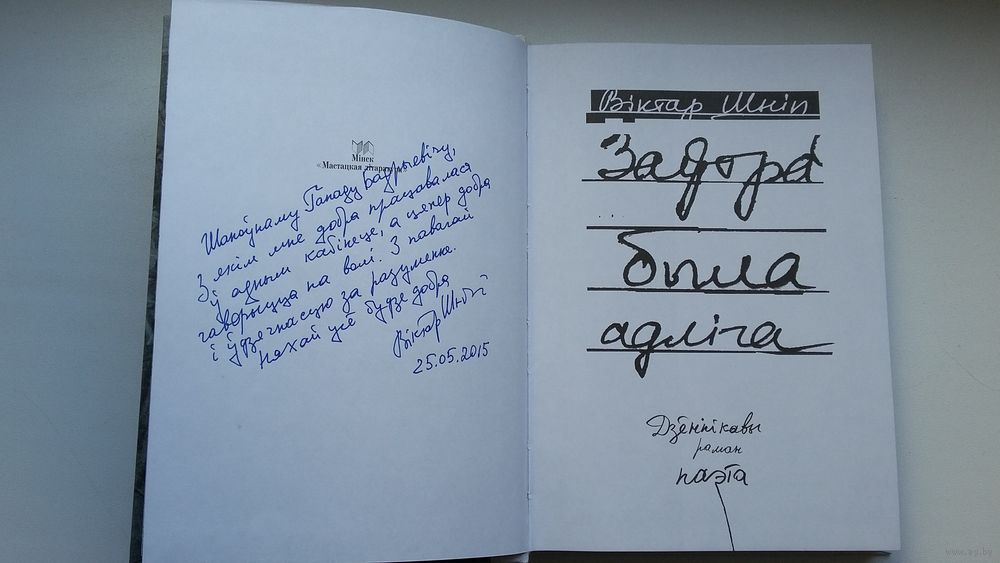 Мінск
«Мастацкая літаратура»
Шаноўнаму Генадзю Баўрыевічу,
з якім мне добра працавалася
ў адным кабінеце, а цяпер добра
гаворыцца на волі. З павагай
і ўдзячнасцю за разуменне.
Няхай усё будзе добра
Віктар Шніп
25.05.2015
Віктар Шніп
Заўтра
была
адліга
Дзённікавы
раман
паэта
www.ay.by